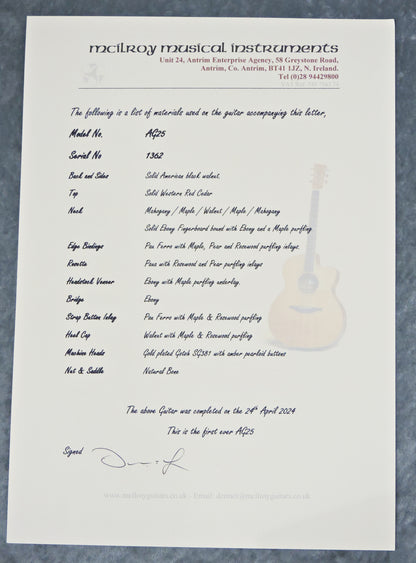 mcilroy musical instruments
Unit 24, Antrim Enterprise Agency, 58 Greystone Road,
Antrim, Co. Antrim, BT41 1JZ, N. Ireland.
Tel (0)28 94429800
The following is a list of materials used on the guitar accompanying this letter,
Model No. AG25
Serial No 1362
Back and Sides Solid American black walnut.
Top Solid Western Red Cedar
Neck Mahogany / Maple / Walnut / Maple / Mahogany
Solid Ebony Fingerboard bound with Ebony and a Maple purfling
Edge Bindings Pau Ferro with Maple, Pear and Rosewood purfling inlays.
Rosette Paua with Rosewood and Pear purfling inlays
Headstock Veneer Ebony with Maple purfling underlay.
Bridge Ebony
Strap Button Inlay Pau Ferro with Maple & Rosewood purfling
Heel Cap Walnut with Maple & Rosewood purfling
Machine Heads Gold plated Gotoh SG381 with amber pearloid buttons
Nut & Saddle Natural Bone
The above Guitar was completed on the 24th April 2024
This is the first ever AG25
Signed
www.mcilroyguitars.co.uk Email: dermot@mcilroyguitars.co.uk